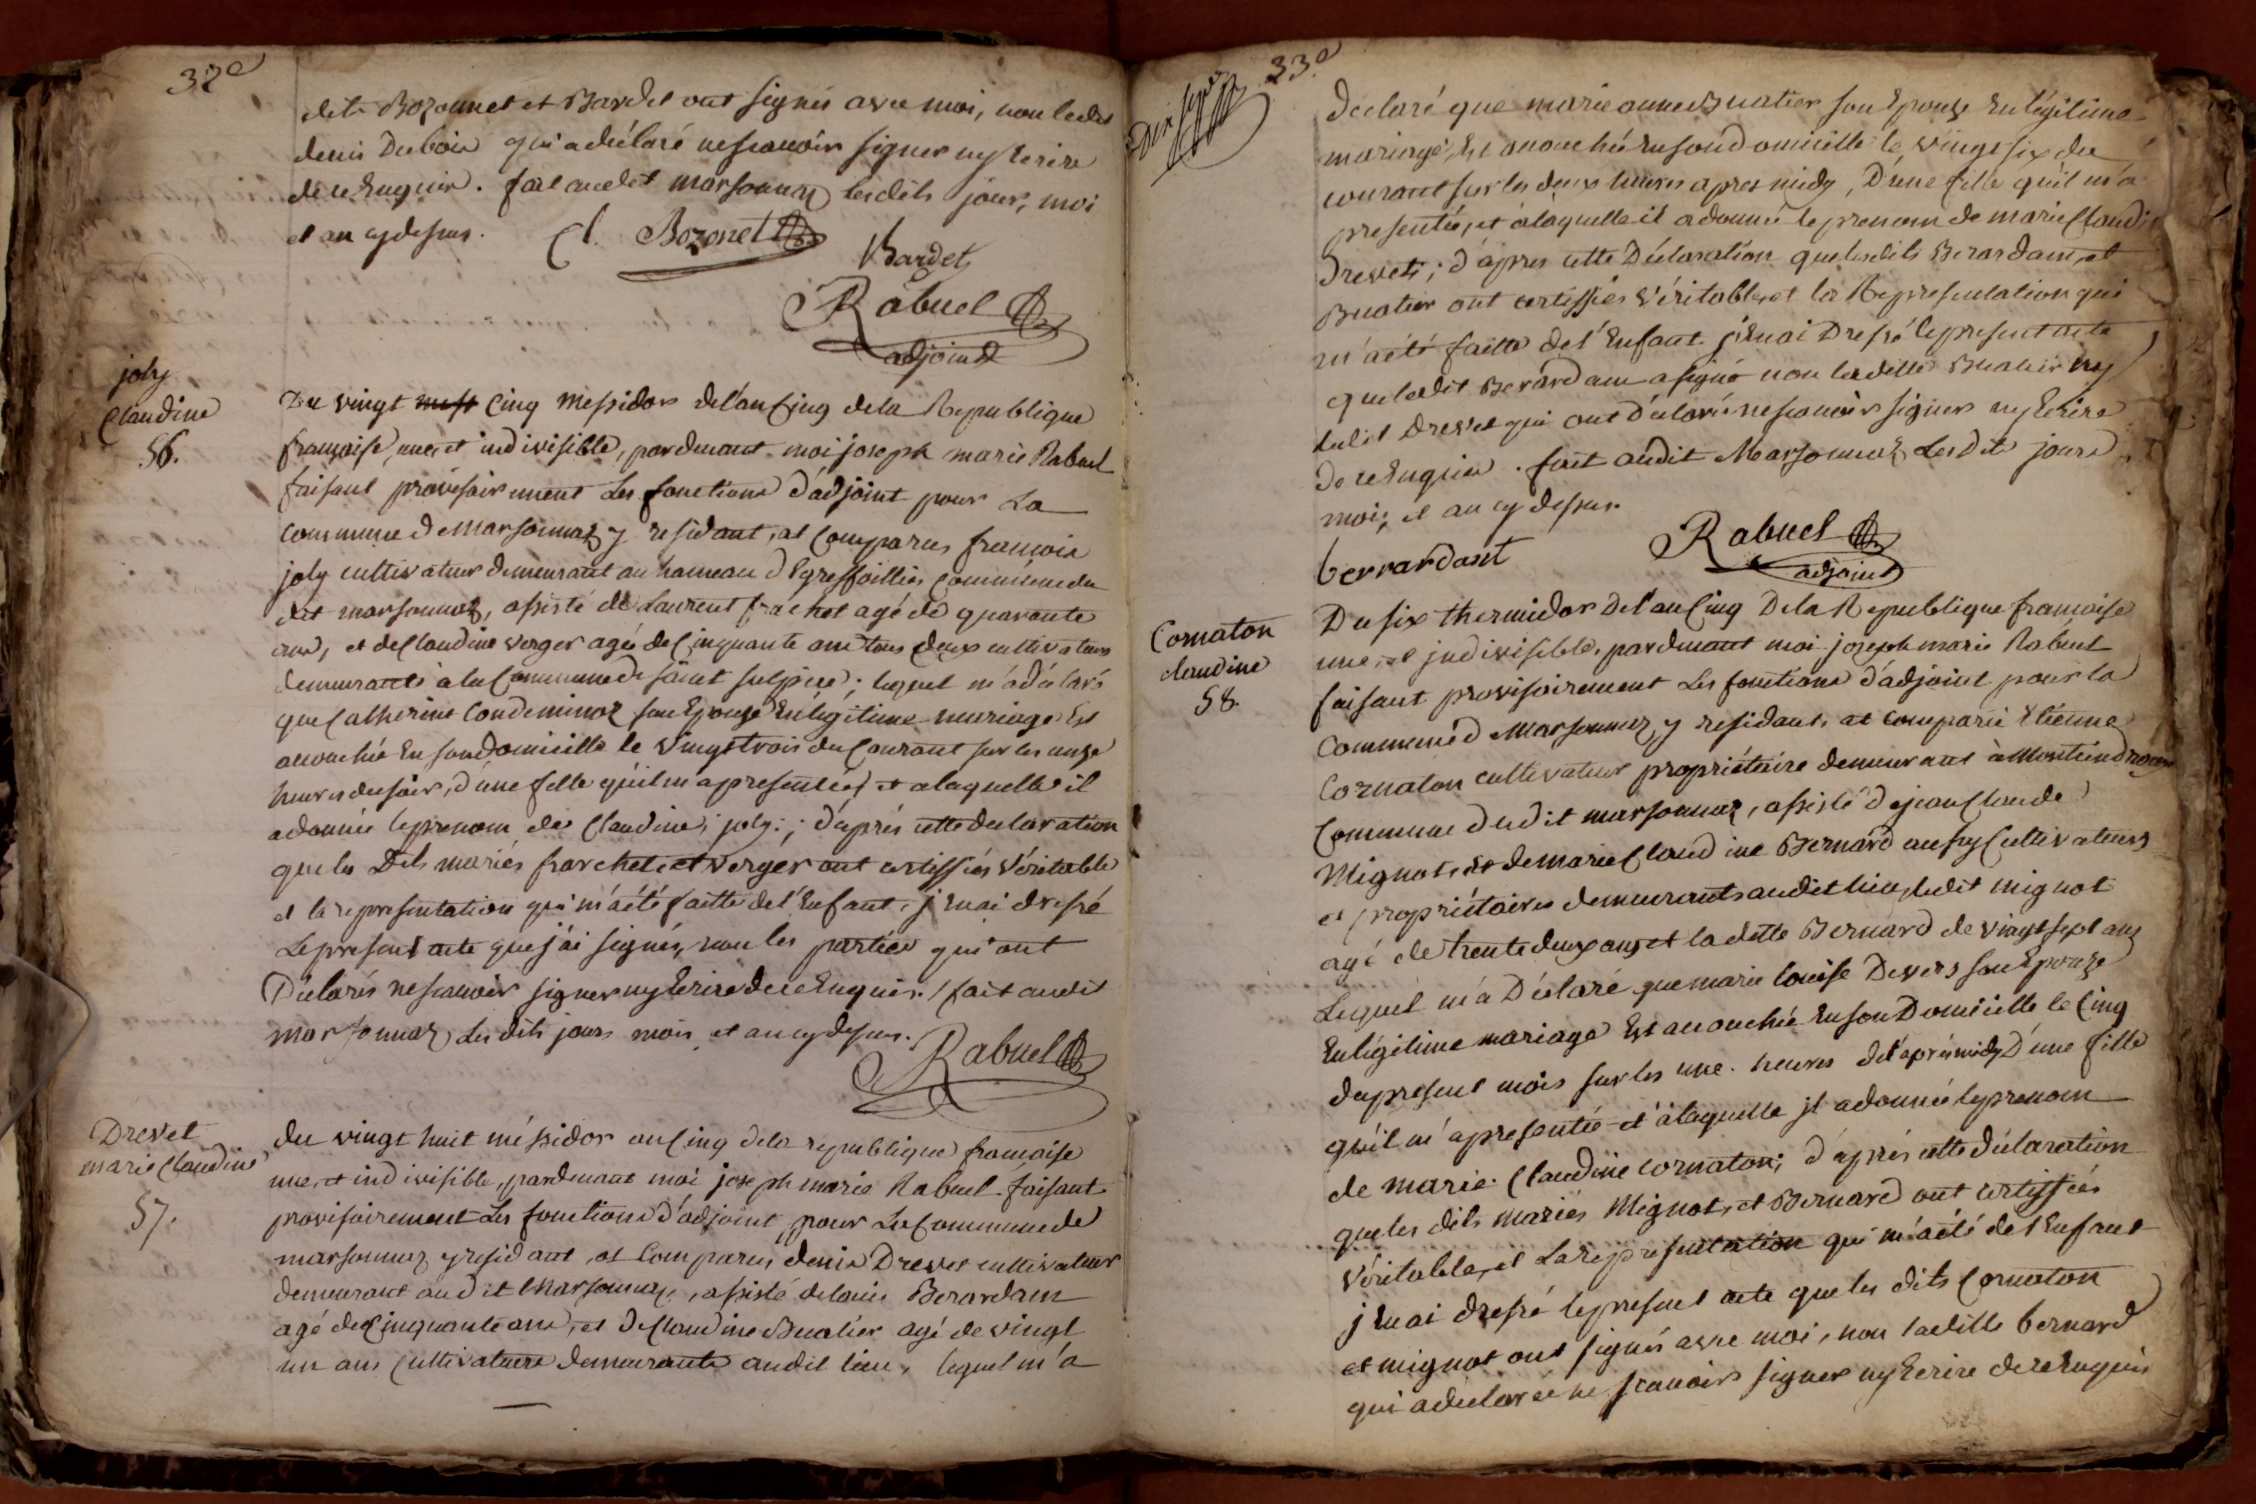 32e
dits Bozonnet et Bardet ont signés avec moi, non ledit
denis Dubois qui a déclaré ne scavoir signer ny Ecrire
de ce Enquis. fait audit marsonnaz lesdits jour, moi
et an cy dessus. Cl. Bozonet
Bardet
Rabuel
adjoint
joly
Claudine
56.
Du vingt cinq Messidor de l'an Cinq de la Republique
francaise, une et indivisible, pardevant moi joseph marie Rabuel
faisant provisoirement Les fonctions d'adjoint pour La
Commune de Marsonnaz y residant, at Comparus francois
joly cultivateur demeurant au hameau d'Egreffoillies Commune du
dit marsonnaz, assisté de Laurent frachet agé de quarante
ans, et de Claudine verger agée de Cinquante ans tous deux cultivateurs
demeurants à la Commune de saint sulpice; lequel m'a déclaré
que Catherine Condeminaz son Epouze En légitime mariage Est
accouchée En son Domicille le vingt trois du Courant sur les unze
heures du soir, d'une fille qu'il m'a presentée, et a laquelle il
a donnée le prenom de Claudine joly; d'aprés cette declaration
que les Dits mariés frarchet et verger ont certiffiés Véritable
et la representation qui m'a été faitte de l'Enfant, j'Enai dressé
Le present acte que j'ai signé, non les parties qui ont
Déclarés ne scavoir signer ny Ecrire de ce Enquis. / fait audit
marsonnaz Les dits jours mois et an cy dessus.
Rabuel
Drevet
marie Claudine
57.
du vingt huit méssidor an Cinq de la republique francaise
une et indivisible, pardevant moi joseph marie Rabuel faisant
provisoirement Les fonctions d'adjoint pour La Commune de
marsonnaz y residant, at Comparus denis Drevet cultivateur
demeurant audit Marsonnaz, assisté de louis Berardam
agé de Cinquante ans, et de Claudine Buatier agé de vingt
un ans Cultivateurs demeurants audit lieu, lequel m'a
33e
Déclaré que marie anne Buatier son Epouze En légitime
mariage, Est anouchée En son Domicille le vingt six du
courant sur les deux heures apres midy, D'une fille qu'il m'a
presentée, et à laquelle il a donnée le prenom de marie Claudine
Drevet; d'après cette Déclaration que lesdits Berardam, et
Buatier ont certiffiés Véritable, et la Representation qui
m'a été faitte de l'Enfant. j'Enai Dressé le present acte
que ledit Berardam a signé non ladille Buatier ny
ledit Drevet qui ont déclaré ne scavoir signer ny Ecrire
de ce Enquis. fait audit Marsonnaz Lesdit jours
moi, et an cy dessus.
berrardant
Rabuel
adjoint
Cornaton
claudine
58.
Du six thermidor De l'an Cinq De la Republique francaise
une, et jndivisible, pardevant moi joseph marie Rabuel
faisant provisoirement Les fonctions d'adjoint pour la
Commune de Marsonnaz, y residant, at comparu Etienne
Cornaton cultivateur propriétaire demeurant à
Commune dudit marsonnaz, assisté de jean Claude
Mignot, et de marie Claudine Bernard aussy Cultivateurs
et propriétaires demeurants audit lieu, ledit mignot
agé de trente deux ans et la ditte Bernard de vingt sept ans
Lequel m'a Déclaré que marie louise Devers son Epouze
En légitime mariage Est anouchée En son Domicille le Cinq
du present mois sur les une heures de l'aprés midy D'une fille
qu'il m'a presentée et à laquelle jl a donnée le prenom
de marie Claudine cornaton; d'aprés cette déclaration
que les dits mariés Mignot, et Bernard ont certiffiés
Véritable, et La representation qui m'a été de l'Enfant
j'Enai dressé le present acte que les dits Cornaton
et mignot ont signés avec moi, non ladille bernard
qui a declarée ne scavoir signer ny Ecrire de ce Enquis